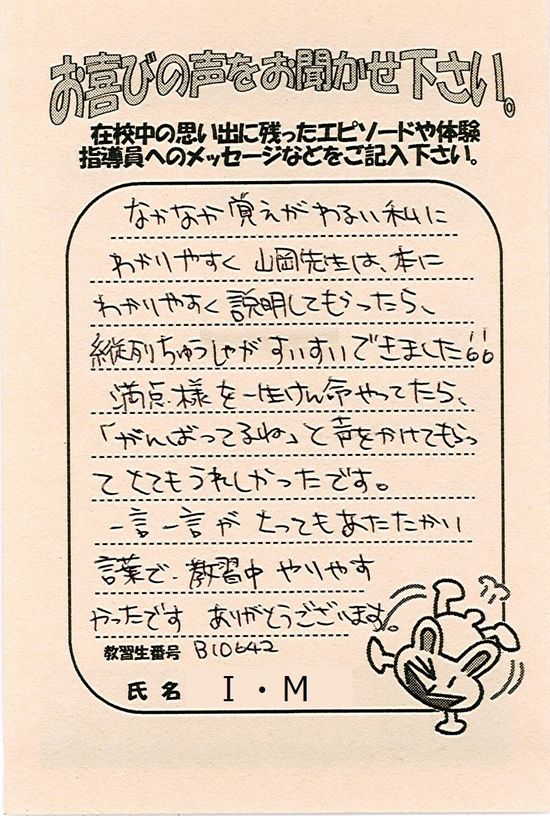 お喜びの声をお聞かせ下さい。
在校中の思い出に残ったエピソードや体験
指導員へのメッセージなどをご記入下さい。
なかなか覚えがわるい私に
わかりやすく山岡先生は、本に
わかりやすく説明してもらったら、
縦列ちゅうしゃがすいすいできました
満点様を一生けん命やってたら、
「がんばってるね」と声をかけてもらっ
てとてもうれしかったです。
一言一言がとってもあたたかい
言葉で、教習中やりやす
かったです ありがとうございます。
教習生番号 B10642
氏名 I・M